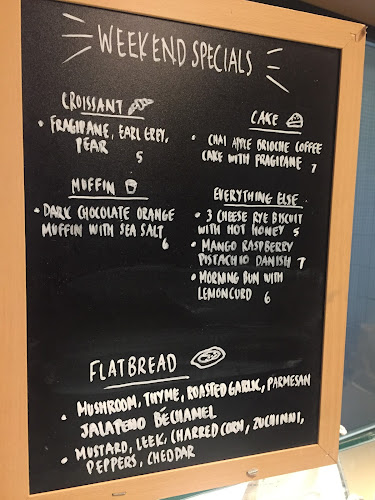 WEEKEND SPECIALS
CROISSANT
• FRAGIPANE, EARL GREY,
PEAR 5
MUFFIN
• DARK CHOCOLATE ORANGE
MUFFIN WITH SEA SALT 6
CAKE
• CHAI APPLE BRIOCHE COFFEE
CAKE WITH FRAGIPANE 7
EVERYTHING ELSE
• 3 CHEESE RYE BISCUIT
WITH HOT HONEY 5
• MANGO RASPBERRY
PISTACHIO DANISH 7
• MORNING BUN WITH
LEMONCURD 6
FLATBREAD
• MUSHROOM, THYME, ROASTED GARLIC, PARMESAN
JALAPENO BÉCHAMEL
• MUSTARD, LEEK, CHARRED CORN, ZUCHINNI,
PEPPERS, CHEDDAR